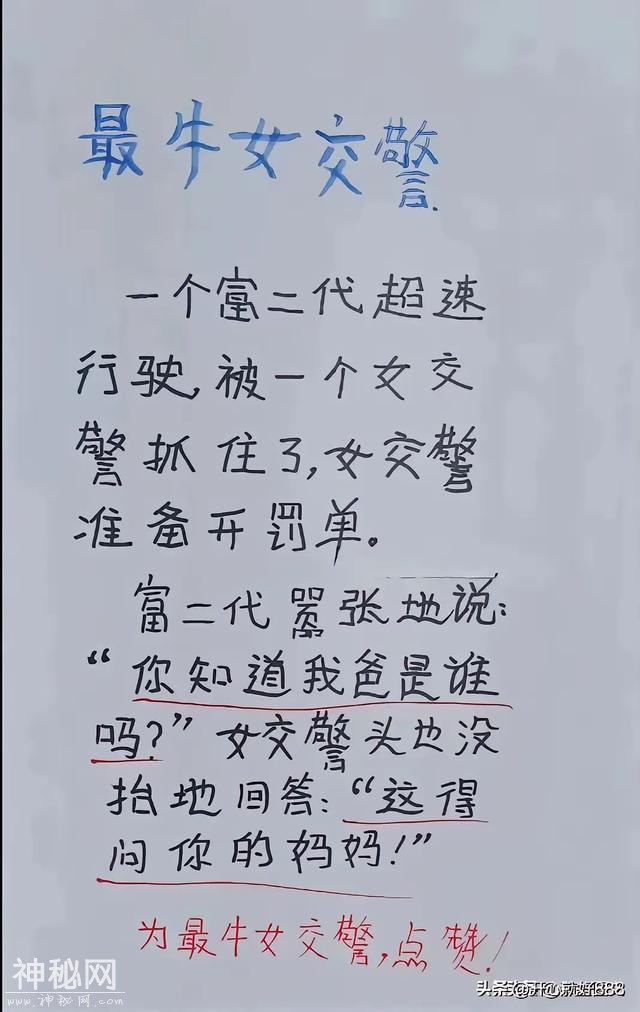 最牛女交警.
一个富二代超速
行驶,被一个女交
警抓住了,女交警
准备开罚单。
富二代嚣张地说:
“你知道我爸是谁
吗?”女交警头也没
抬地回答:“这得
问你的妈妈!”
为最牛女交警,点赞!
神秘网
www.shenmi.com.cn